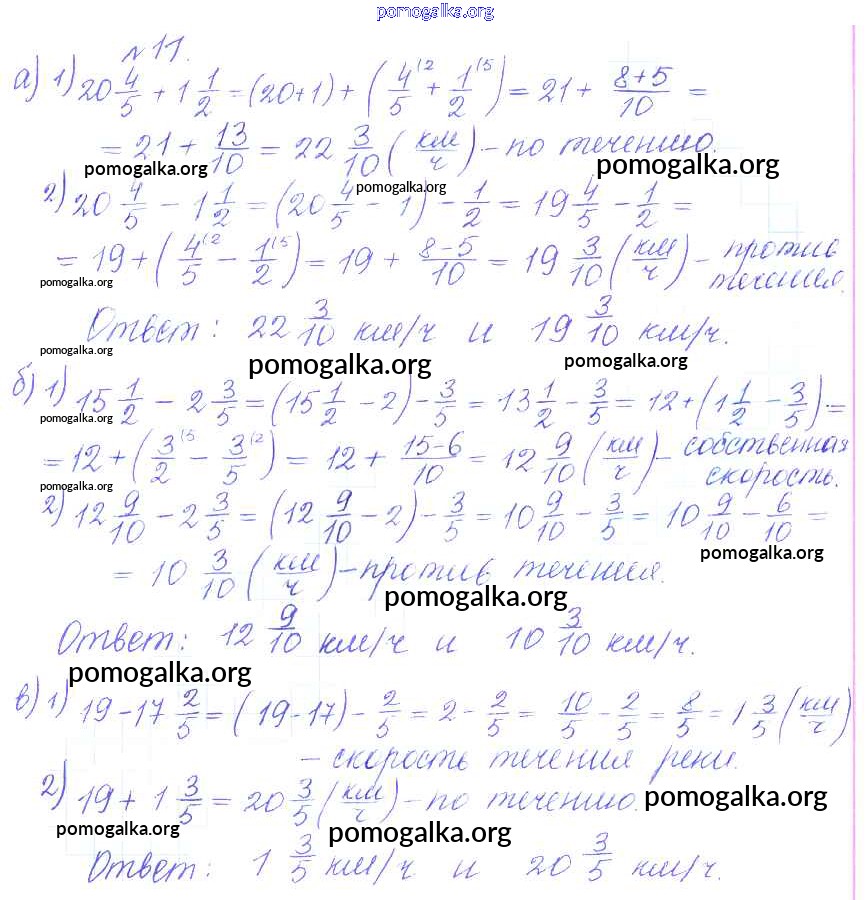 pomogalka.org
№ 11.
а) 1) 20 4/5 + 1 1/2 = (20+1) + (4/5 (2 + 1/2 (5) = 21 + 8+5/10 =
= 21 + 13/10 = 22 3/10 (км/ч) - по течению.
pomogalka.org pomogalka.org pomogalka.org
2) 20 4/5 - 1 1/2 = (20 4/5 - 1) - 1/2 = 19 4/5 - 1/2 =
= 19 + (4/5 (2 - 1/2 (5) = 19 + 8-5/10 = 19 3/10 (км/ч) - против
течения.
pomogalka.org
Ответ: 22 3/10 км/ч и 19 3/10 км/ч.
pomogalka.org pomogalka.org pomogalka.org
б) 1) 15 1/2 - 2 3/5 = (15 1/2 - 2) - 3/5 = 13 1/2 - 3/5 = 12 + (1 1/2 - 3/5) =
pomogalka.org
= 12 + (3/2 (5 - 3/5 (2) = 12 + 15-6/10 = 12 9/10 (км/ч) - собственная
скорость.
pomogalka.org
2) 12 9/10 - 2 3/5 = (12 9/10 - 2) - 3/5 = 10 9/10 - 3/5 = 10 9/10 - 6/10 =
pomogalka.org
= 10 3/10 (км/ч) - против течения.
pomogalka.org
Ответ: 12 9/10 км/ч и 10 3/10 км/ч.
pomogalka.org
в) 1) 19 - 17 2/5 = (19 - 17) - 2/5 = 2 - 2/5 = 10/5 - 2/5 = 8/5 = 1 3/5 (км/ч)
- скорость течения реки.
2) 19 + 1 3/5 = 20 3/5 (км/ч) - по течению.
pomogalka.org
pomogalka.org pomogalka.org
Ответ: 1 3/5 км/ч и 20 3/5 км/ч.